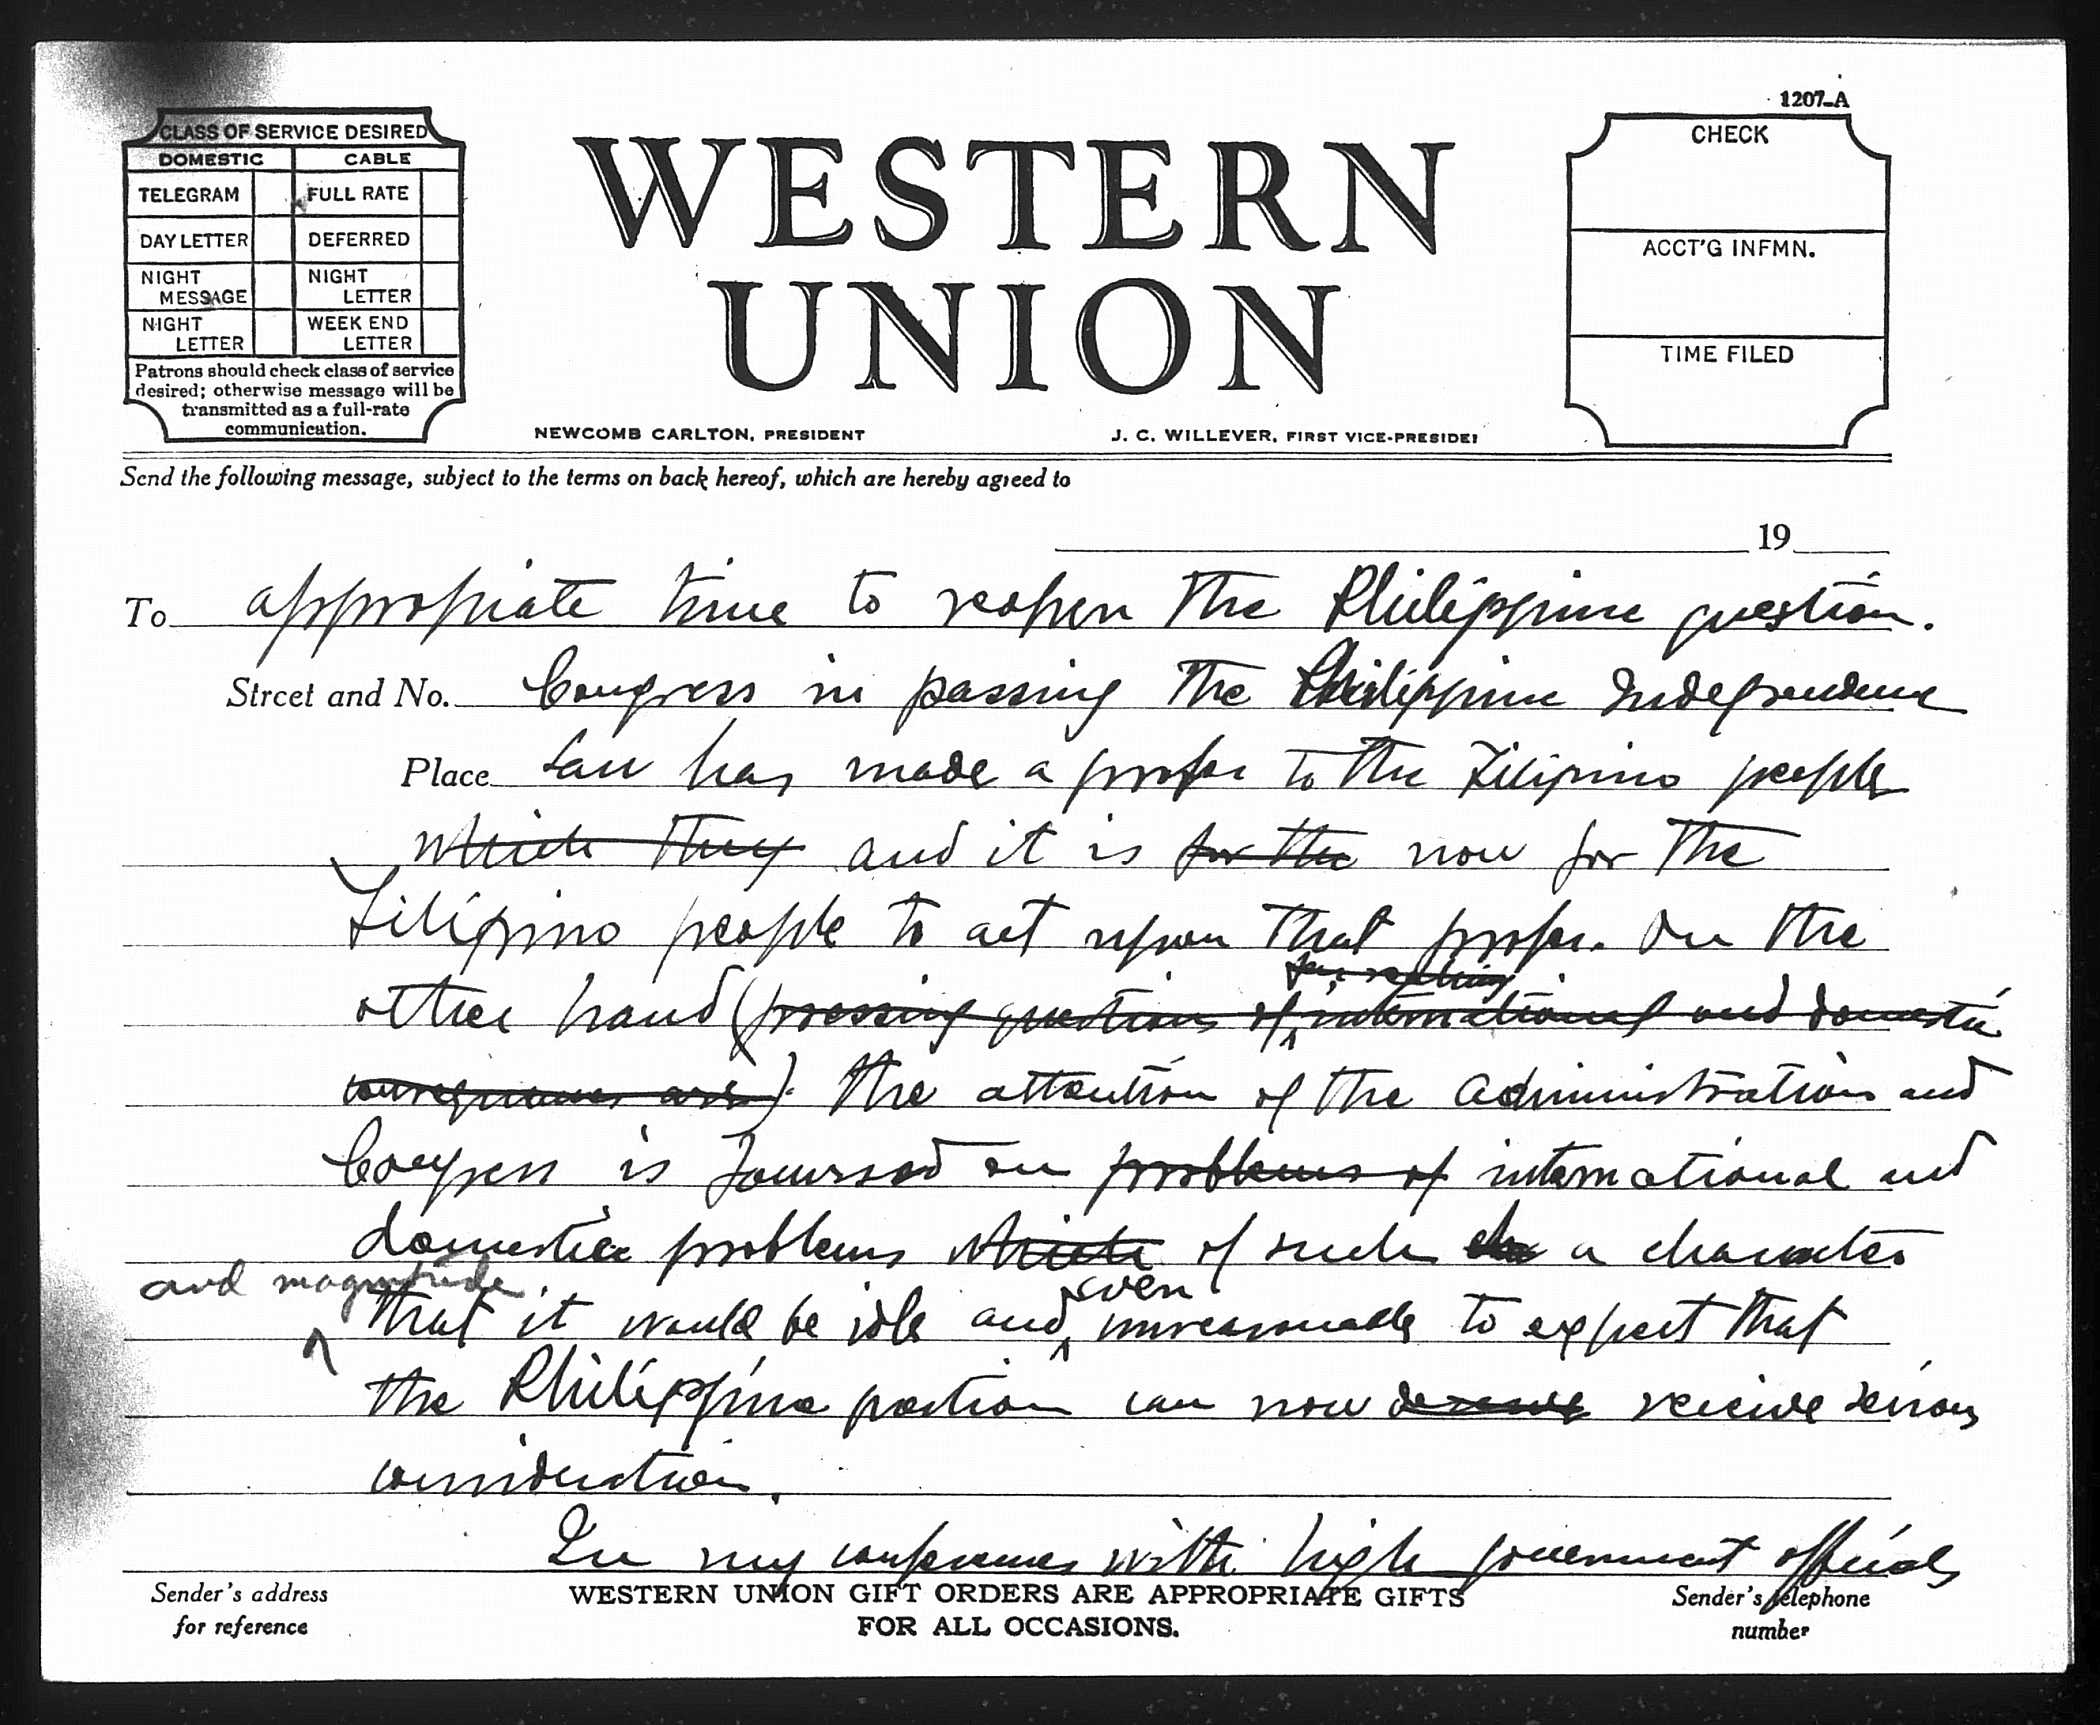 1207-A
CLASS OF SERVICE DESIRED
DOMESTIC CABLE
TELEGRAM FULL RATE
DAY LETTER DEFERRED
NIGHT MESSAGE NIGHT LETTER
NIGHT LETTER WEEK END LETTER
Patrons should check class of service
desired; otherwise message will be
transmitted as a full-rate
communication.
WESTERN
UNION
NEWCOMB CARLTON, PRESIDENT J. C. WILLEVER, FIRST VICE-PRESIDE
CHECK
ACCT'G INFMN.
TIME FILED
Send the following message, subject to the terms on back hereof, which are hereby agreed to
19
To appropriate time to reopen the Philippine question.
Street and No. Congress in passing the Philippine Independence
Place Law has made a proffer to the Filipino people
which they and it is for the now for the
Filipino people to act upon that proffer. On the
other hand (pressing questions of international and domestic
consequences are). the attention of the administration and
Congress is focussed on problems of international and
domestic problems which of such cha a character
and magnitude
that it would be idle and even unreasonable to expect that
the Philippine question can now deserve receive serious
consideration.
In my conferences with high government officials
Sender's address
for reference
WESTERN UNION GIFT ORDERS ARE APPROPRIATE GIFTS
FOR ALL OCCASIONS.
Sender's telephone
number